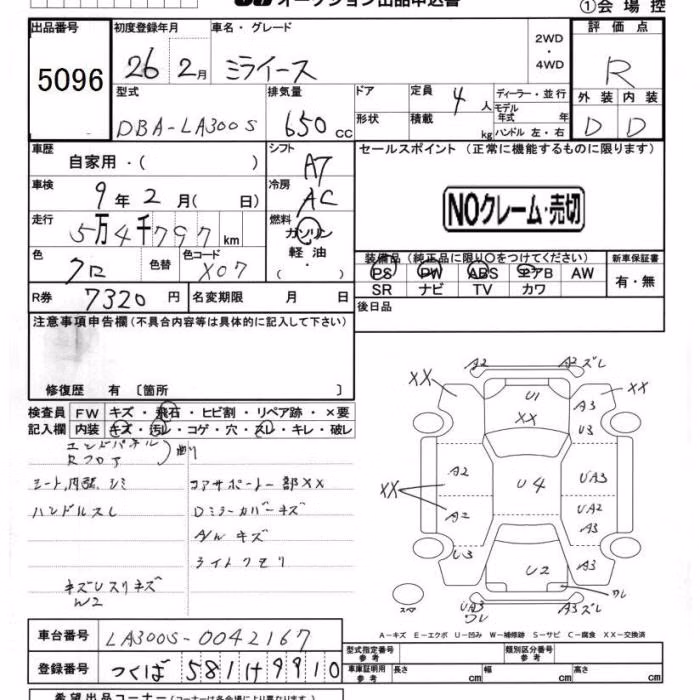 オークション出品申込書
①会場控
出品番号
5096
初度登録年月
26 2月
車名・グレード
ミライース
2WD
・
4WD
評価点
R
外装 内装
D D
型式
DBA-LA300S
排気量
650 cc
ドア
形状
定員 4 人
積載 kg
ディーラー・並行
モデル年式 年
ハンドル 左・右
車歴
自家用・( )
シフト
AT
セールスポイント (正常に機能するものに限ります)
NOクレーム・売切
車検
9年2月( 日)
冷房
AC
走行
5万4千797km
燃料
ガソリン
軽油
( ・ )
色
クロ
色替
色コード
X07
装備品 (純正品に限り○をつけてください)
PS PW ABS エアB AW
SR ナビ TV カワ
新車保証書
有・無
R券 7320円
名変期限 月 日
後日品
注意事項申告欄 (不具合内容等は具体的に記入して下さい)
修復歴 有 〔箇所 〕
検査員記入欄
FW キズ・飛石・ヒビ割・リペア跡・×要
内装 キズ・汚レ・コゲ・穴・スレ・キレ・破レ
エンドパネル
Rフロア
シート,内張,シミ
ハンドルスレ
コアサポート一部XX
Dミラーカバーキズ
A/W キズ
ライトクモリ
W2
A2 A2 ズレ
XX XX
U1
XX
A3
U3
A2
XX
A2
U4
UA3
UA2
A3
U3
U2
A3
ワレ
スペア
UA3
ワレ
A3 ズレ
A-キズ E-エクボ U-凹み W-補修跡 S-サビ C-腐食 XX-交換済
車台番号 LA300S-0042167
登録番号 つくば 581 け 9910
型式指定番号
参考
類別区分番号
参考
車庫証明用
参考
長さ cm 幅 cm 高さ cm
希望出品コーナー (コーナーは各会場により異なります)